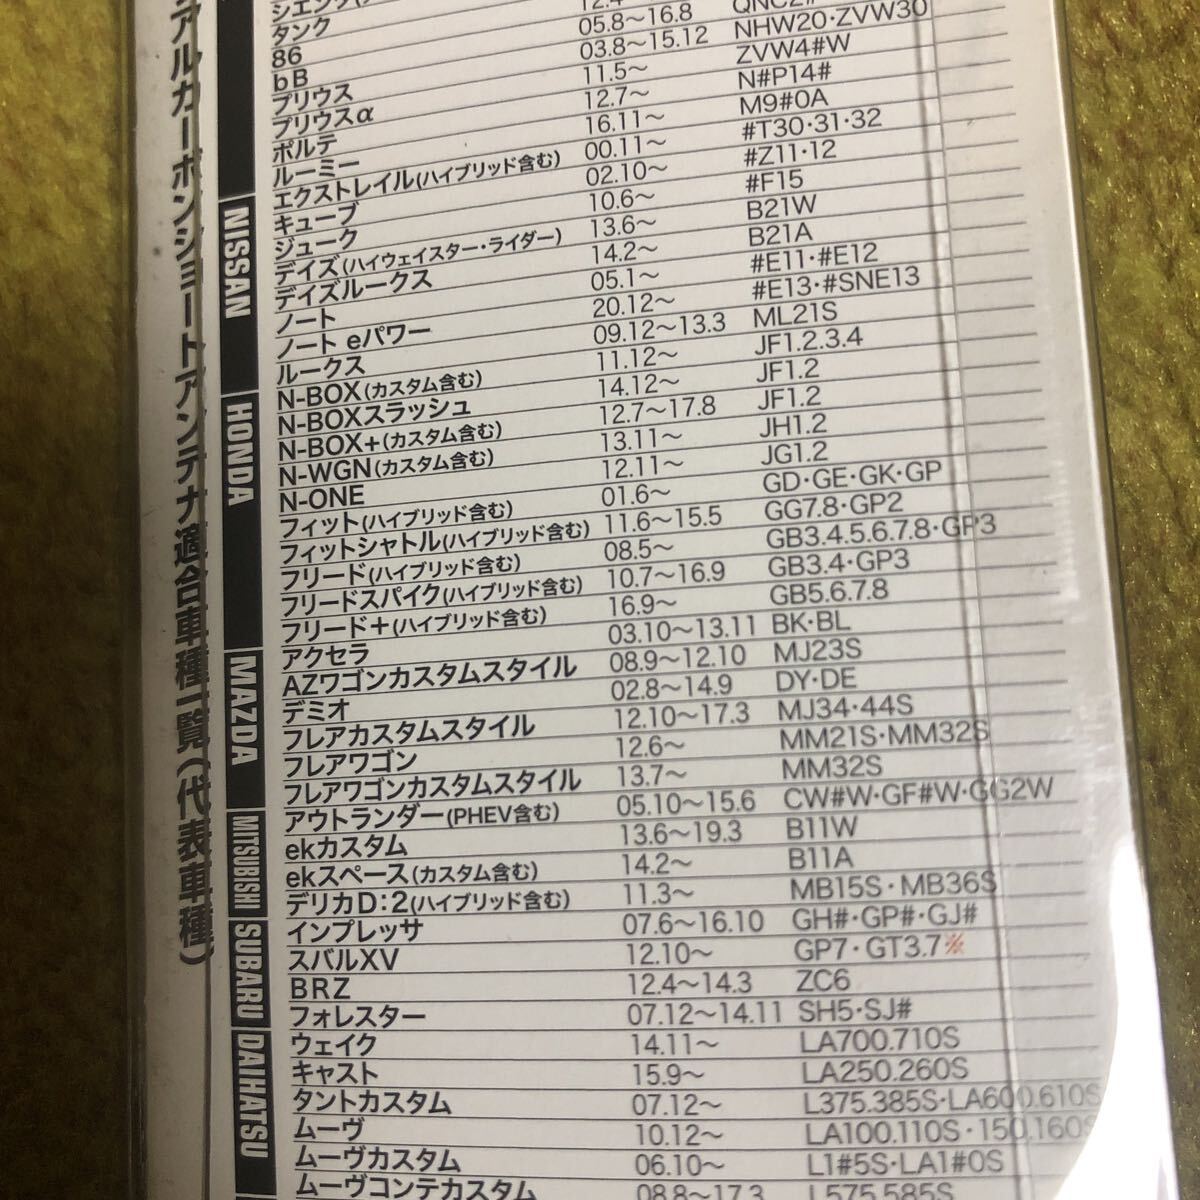 アルカーボンショートアンテナ適合車種一覧(代表車種)
シエンタ
タンク
86 12.4～
bB 05.8～16.8 QNC2#
プリウス 03.8～15.12 NHW20・ZVW30
プリウスα 11.5～ ZVW4#W
ポルテ 12.7～ N#P14#
ルーミー 16.11～ M9#0A
NISSAN
エクストレイル(ハイブリッド含む) 00.11～ #T30・31・32
キューブ 02.10～ #Z11・12
ジューク 10.6～ #F15
デイズ(ハイウェイスター・ライダー) 13.6～ B21W
デイズルークス 14.2～ B21A
ノート 05.1～ #E11・#E12
ノート eパワー 20.12～ #E13・#SNE13
ルークス 09.12～13.3 ML21S
HONDA
N-BOX(カスタム含む) 11.12～ JF1.2.3.4
N-BOXスラッシュ 14.12～ JF1.2
N-BOX+(カスタム含む) 12.7～17.8 JF1.2
N-WGN(カスタム含む) 13.11～ JH1.2
N-ONE 12.11～ JG1.2
フィット(ハイブリッド含む) 01.6～ GD・GE・GK・GP
フィットシャトル(ハイブリッド含む) 11.6～15.5 GG7.8・GP2
フリード(ハイブリッド含む) 08.5～ GB3.4.5.6.7.8・GP3
フリードスパイク(ハイブリッド含む) 10.7～16.9 GB3.4・GP3
フリード＋(ハイブリッド含む) 16.9～ GB5.6.7.8
MAZDA
アクセラ 03.10～13.11 BK・BL
AZワゴンカスタムスタイル 08.9～12.10 MJ23S
デミオ 02.8～14.9 DY・DE
フレアカスタムスタイル 12.10～17.3 MJ34・44S
フレアワゴン 12.6～ MM21S・MM32S
フレアワゴンカスタムスタイル 13.7～ MM32S
MITSUBISHI
アウトランダー(PHEV含む) 05.10～15.6 CW#W・GF#W・GG2W
ekカスタム 13.6～19.3 B11W
ekスペース(カスタム含む) 14.2～ B11A
デリカD:2(ハイブリッド含む) 11.3～ MB15S・MB36S
SUBARU
インプレッサ 07.6～16.10 GH#・GP#・GJ#
スバルXV 12.10～ GP7・GT3.7※
BRZ 12.4～14.3 ZC6
フォレスター 07.12～14.11 SH5・SJ#
DAIHATSU
ウェイク 14.11～ LA700.710S
キャスト 15.9～ LA250.260S
タントカスタム 07.12～ L375.385S・LA600.610S
ムーヴ 10.12～ LA100.110S・150.160S
ムーヴカスタム 06.10～ L1#5S・LA1#0S
ムーヴコンテカスタム 08.8～17.3 L575.585S